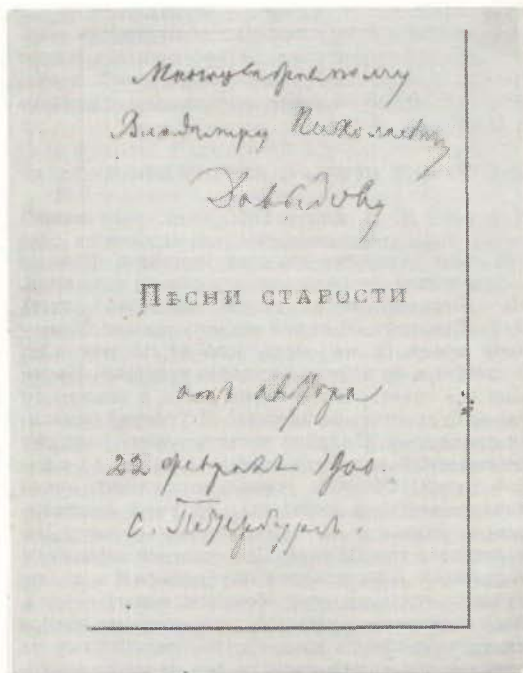 Многоуважаемому
Владимiру Николаевичу
Давыдову
Пѣсни старости
отъ автора
22 февраля 1900.
С. Петербургъ.